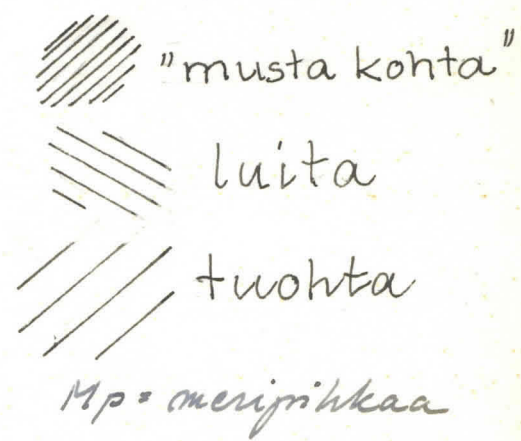 "musta kohta"
luita
tuohta
Mp = meripihkaa